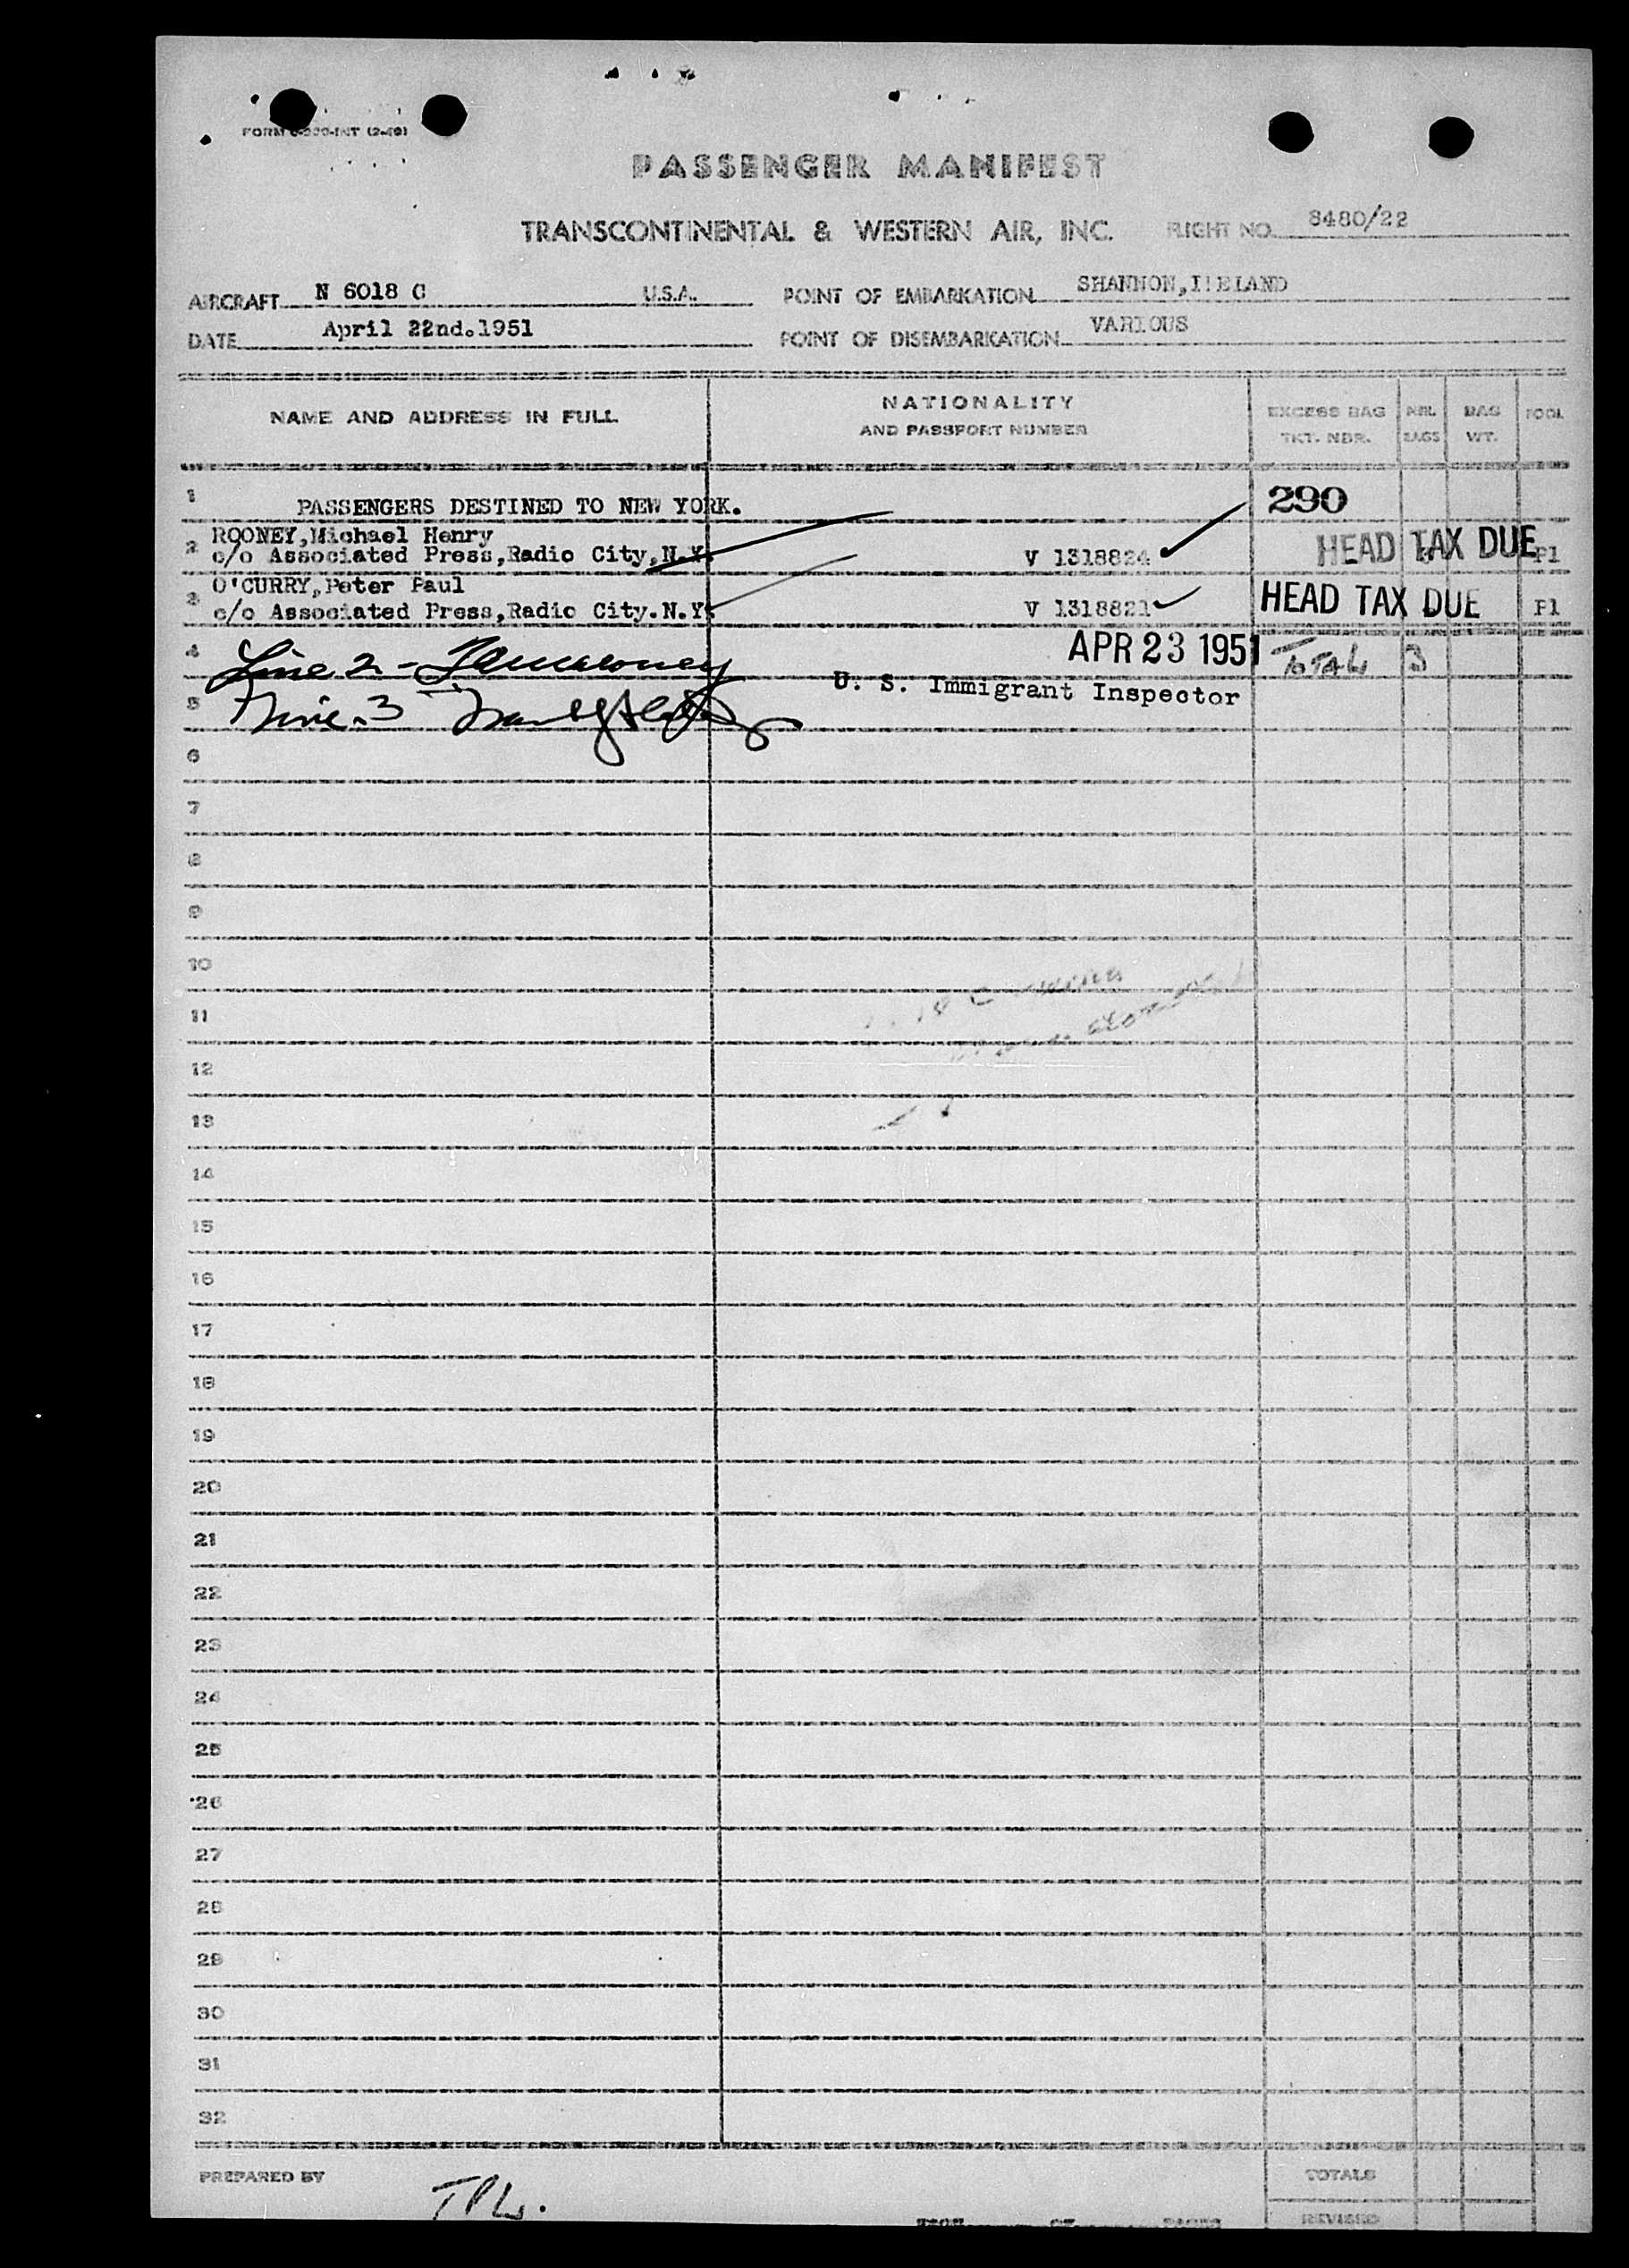 PASSENGER MANIFEST
TRANSCONTINENTAL & WESTERN AIR, INC. FLIGHT NO. 8480/22
AIRCRAFT N 6018 C U.S.A. POINT OF EMBARKATION SHANNON, IRELAND
DATE April 22nd.1951 POINT OF DISEMBARKATION VARIOUS
NAME AND ADDRESS IN FULL NATIONALITY AND PASSPORT NUMBER EXCESS BAG TKT. NBR. NBR. BAGS BAG WT. POOL
1 PASSENGERS DESTINED TO NEW YORK. 290
2 ROONEY,Michael Henry
c/o Associated Press,Radio City,N.Y. V 1318824 HEAD TAX DUE P1
3 O'CURRY,Peter Paul
c/o Associated Press,Radio City.N.Y. V 1318821 HEAD TAX DUE P1
4 Line 2 - APR 23 1951 TOTAL 3
U. S. Immigrant Inspector
5 Line 3
6
7
8
9
10
11
12
13
14
15
16
17
18
19
20
21
22
23
24
25
26
27
28
29
30
31
32
PREPARED BY TOTALS
REVISED